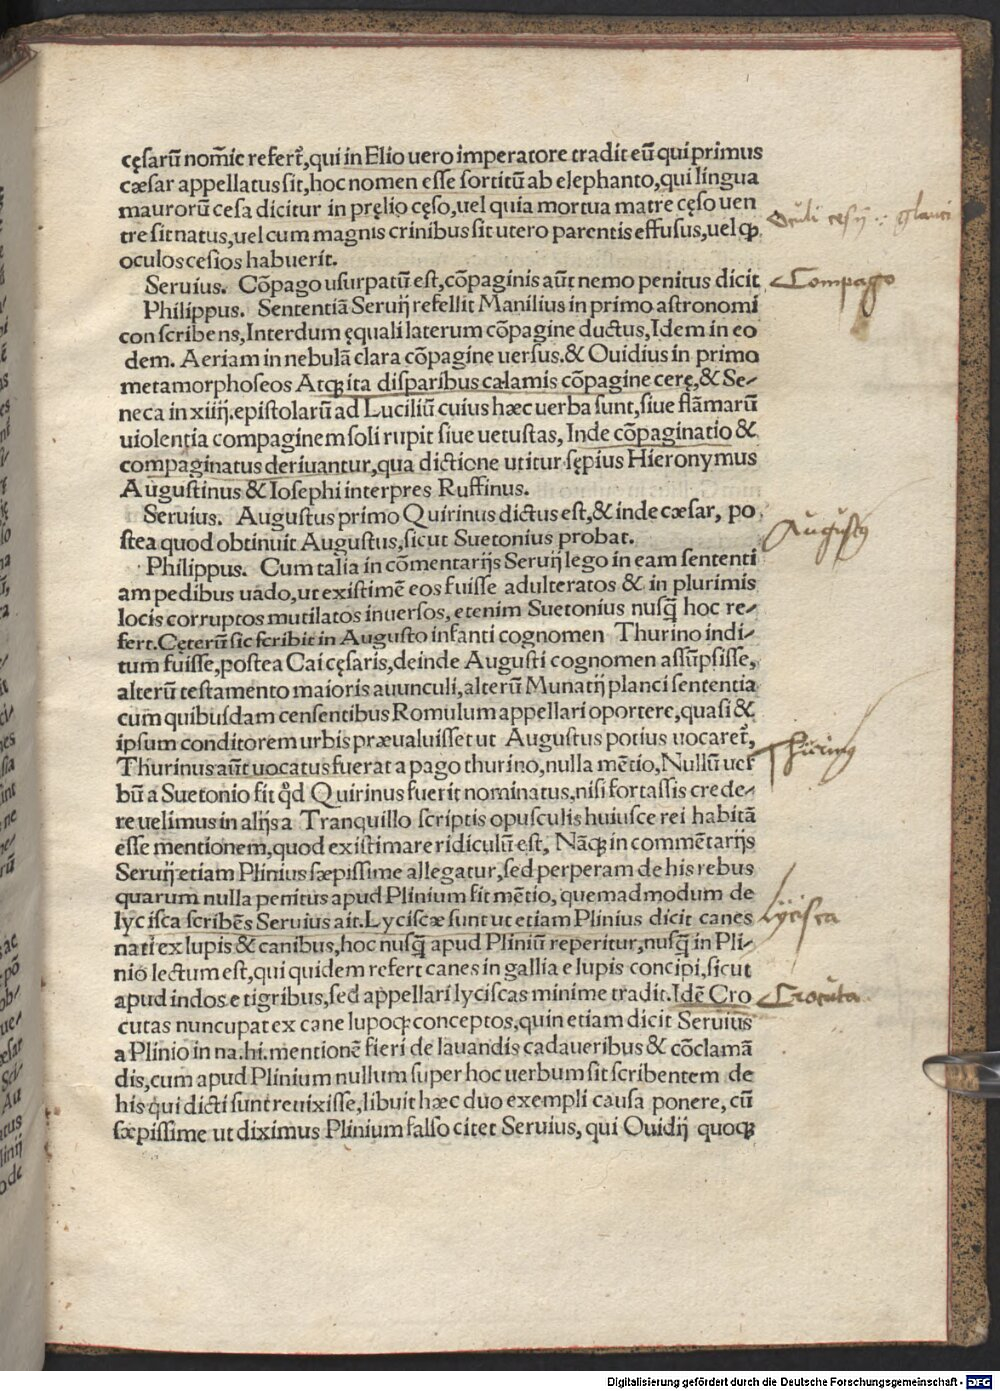 cęsarū nom̄ie refert᷑,qui in Elio uero imperatore tradit eū qui primus
cæsar appellatus sit,hoc nomen esse sortitū ab elephanto,qui lingua
maurorū cesa dicitur in pręlio cęso,uel quia mortua matre cęso uen
tre sit natus,uel cum magnis crinibus sit utero parentis effusus,uel qꝫ
oculos cesios habuerit.
Oculi cesij : glauci
Seruius. Cōpago usurpatū est,cōpaginis aūt nemo penitus dicit
Compago
Philippus. Sententiā Seruij refellit Manilius in primo astronomi
con scribens,Interdum ęquali laterum cōpagine ductus,Idem in eo
dem. Aeriam in nebulā clara cōpagine uersus.& Ouidius in primo
metamorphoseos Atqꝫ ita disparibus calamis cōpagine cerę,& Se-
neca in xiiij.epistolarū ad Luciliū cuius hæc uerba sunt,siue flāmarū
uiolentia compaginem soli rupit siue uetustas, Inde cōpaginatio &
compaginatus deriuantur,qua dictione utitur sępius Hieronymus
Augustinus & Iosephi interpres Ruffinus.
Seruius. Augustus primo Quirinus dictus est,& inde cæsar, po
stea quod obtinuit Augustus,sicut Suetonius probat.
Augustus
Philippus. Cum talia in cōmentarijs Seruij lego in eam sententi
am pedibus uado,ut existimē eos fuisse adulteratos & in plurimis
locis corruptos mutilatos inuersos, etenim Suetonius nusq̄ hoc re-
fert.Cęterū sic scribit in Augusto infanti cognomen Thurino indi-
tum fuisse,postea Cai cęsaris,deinde Augusti cognomen assūpsisse,
alterū testamento maioris auunculi,alterū Munatij planci sententia
cum quibusdam censentibus Romulum appellari oportere,quasi &
ipsum conditorem urbis præualuisset ut Augustus potius uocaret᷑,
Thurinus aūt uocatus fuerat a pago thurino,nulla mētio,Nullū uer
Thurinus
bū a Suetonio fit q̊d Quirinus fuerit nominatus,nisi fortassis crede-
re uelimus in alijs a Tranquillo scriptis opusculis huiusce rei habitā
esse mentionem,quod existimare ridiculū est, Nāqꝫ in commētarijs
Seruij etiam Plinius sæpissime allegatur,sed perperam de his rebus
quarum nulla penitus apud Plinium fit mētio, quemadmodum de
lycisca scribēs Seruius ait.Lyciscæ sunt ut etiam Plinius dicit canes
Lycisca
nati ex lupis & canibus,hoc nusq̄ apud Pliniū reperitur,nusq̄ in Pli-
nio lectum est,qui quidem refert canes in gallia e lupis concipi,sicut
apud indos e tigribus,sed appellari lyciscas minime tradit.Idē Cro
Crocuta
cutas nuncupat ex cane lupoqꝫ conceptos,quin etiam dicit Seruius
a Plinio in na.hi.mentionē fieri de lauandis cadaueribus & cōclamā
dis,cum apud Plinium nullum super hoc uerbum sit scribentem de
his qui dicti sunt reuixisse,libuit hæc duo exempli causa ponere, cū
sæpissime ut diximus Plinium falso citet Seruius, qui Ouidij quoqꝫ
Digitalisierung gefördert durch die Deutsche Forschungsgemeinschaft - DFG